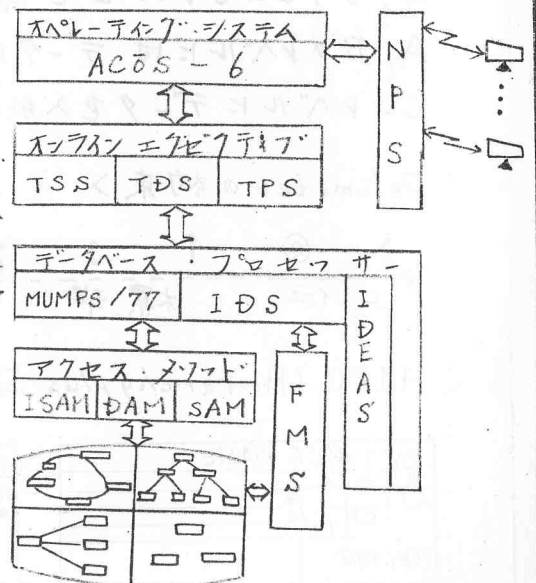 オペレーティング・システム
ACOS-6
NPS
オンライン エグゼクティブ
TSS DS TPS
データベース・プロセッサー
MUMPS/77 IDS
IDEAS
アクセス メソッド
ISAM DAM SAM
FMS